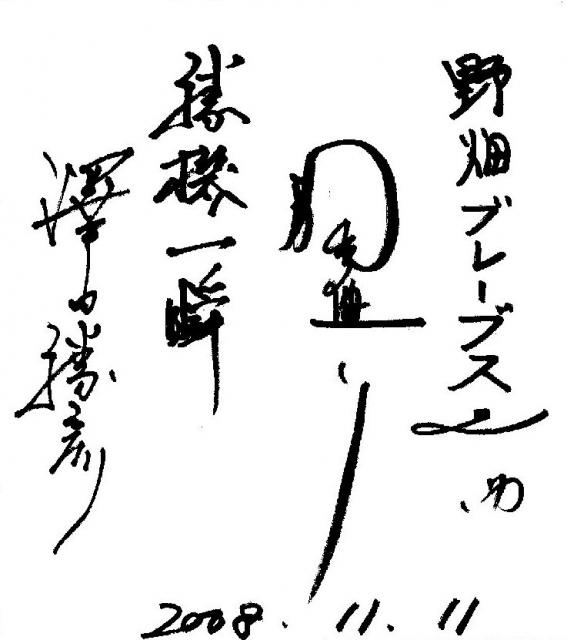 野畑ブレーブス
勝機一瞬
澤田勝彦
2008.11.11